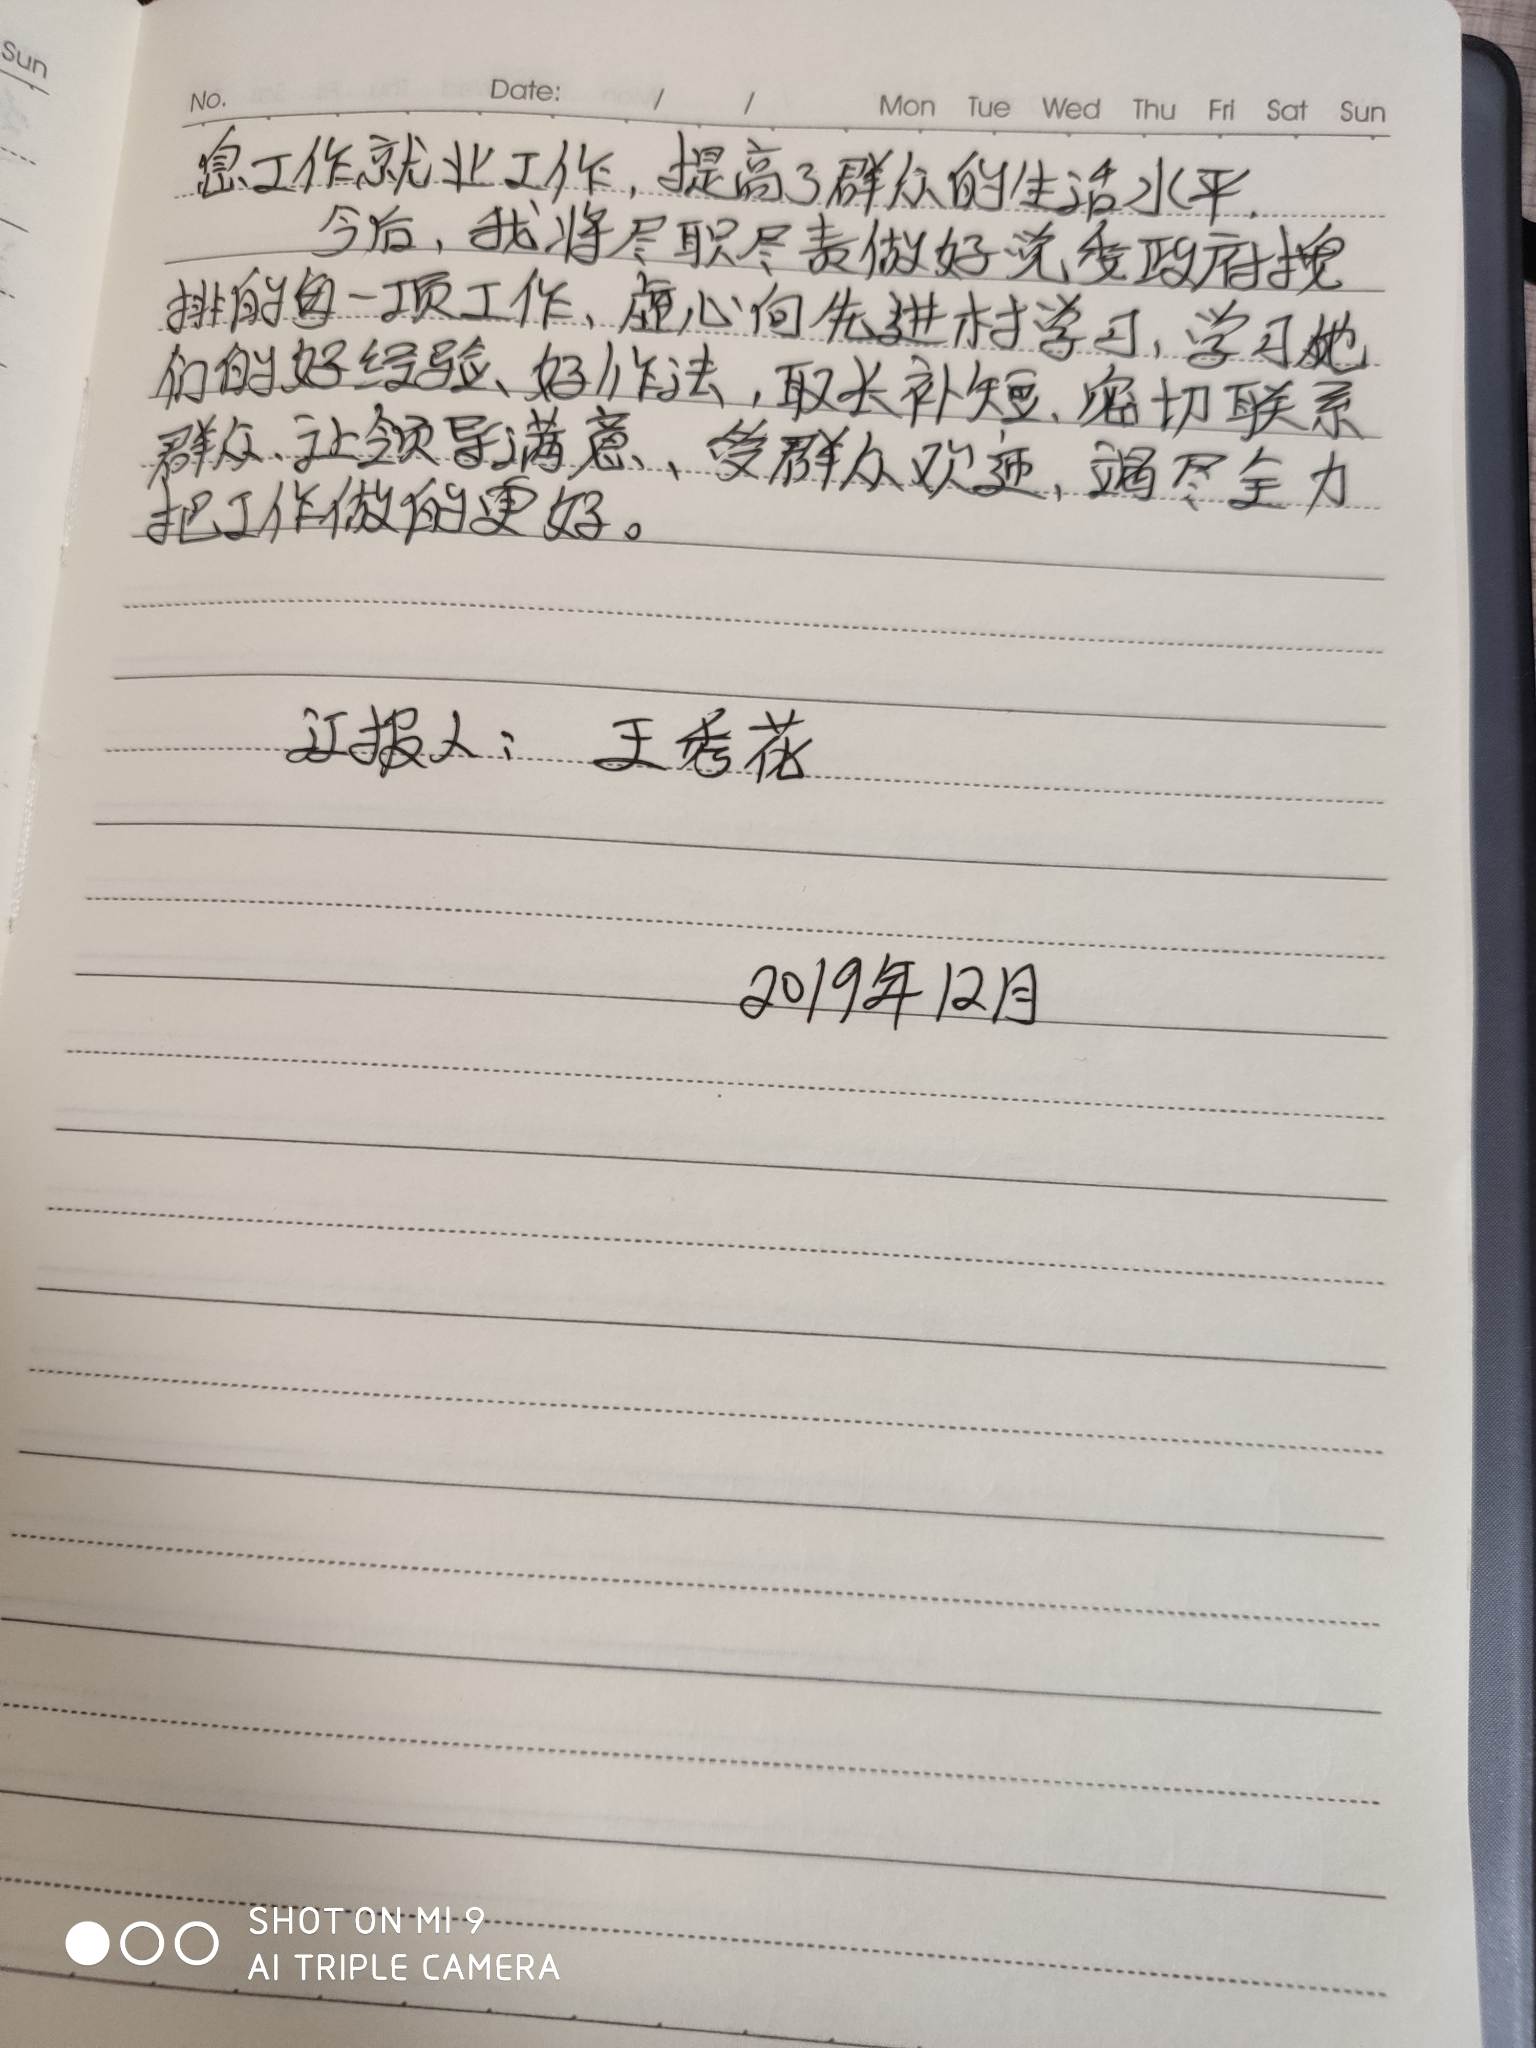 Sun
No. Date: / / Mon Tue Wed Thu Fri Sat Sun
息工作就业工作，提高了群众的生活水平.
今后，我将尽职尽责做好党委政府
排的每一项工作、虚心向先进村学习，学习她
们的好经验、好作法，取长补短、密切联系
群众、让领导满意、受群众欢迎，竭尽全力
把工作做的更好。
汇报人： 王秀花
2019年12月
SHOT ON MI 9
AI TRIPLE CAMERA